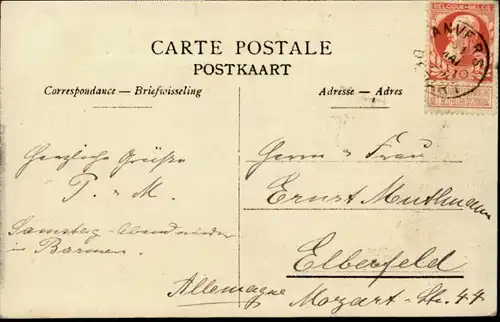 CARTE POSTALE
POSTKAART
Correspondance — Briefwisseling
Adresse — Adres
BELGIQUE·BELGIË
ANVERS
10
Herzliche Grüße
T. u. M.
Samstag Abend wieder
in Barmen.
Herrn u Frau
Ernst Muthmann
Elberfeld
Mozart-Str. 44
Allemagne